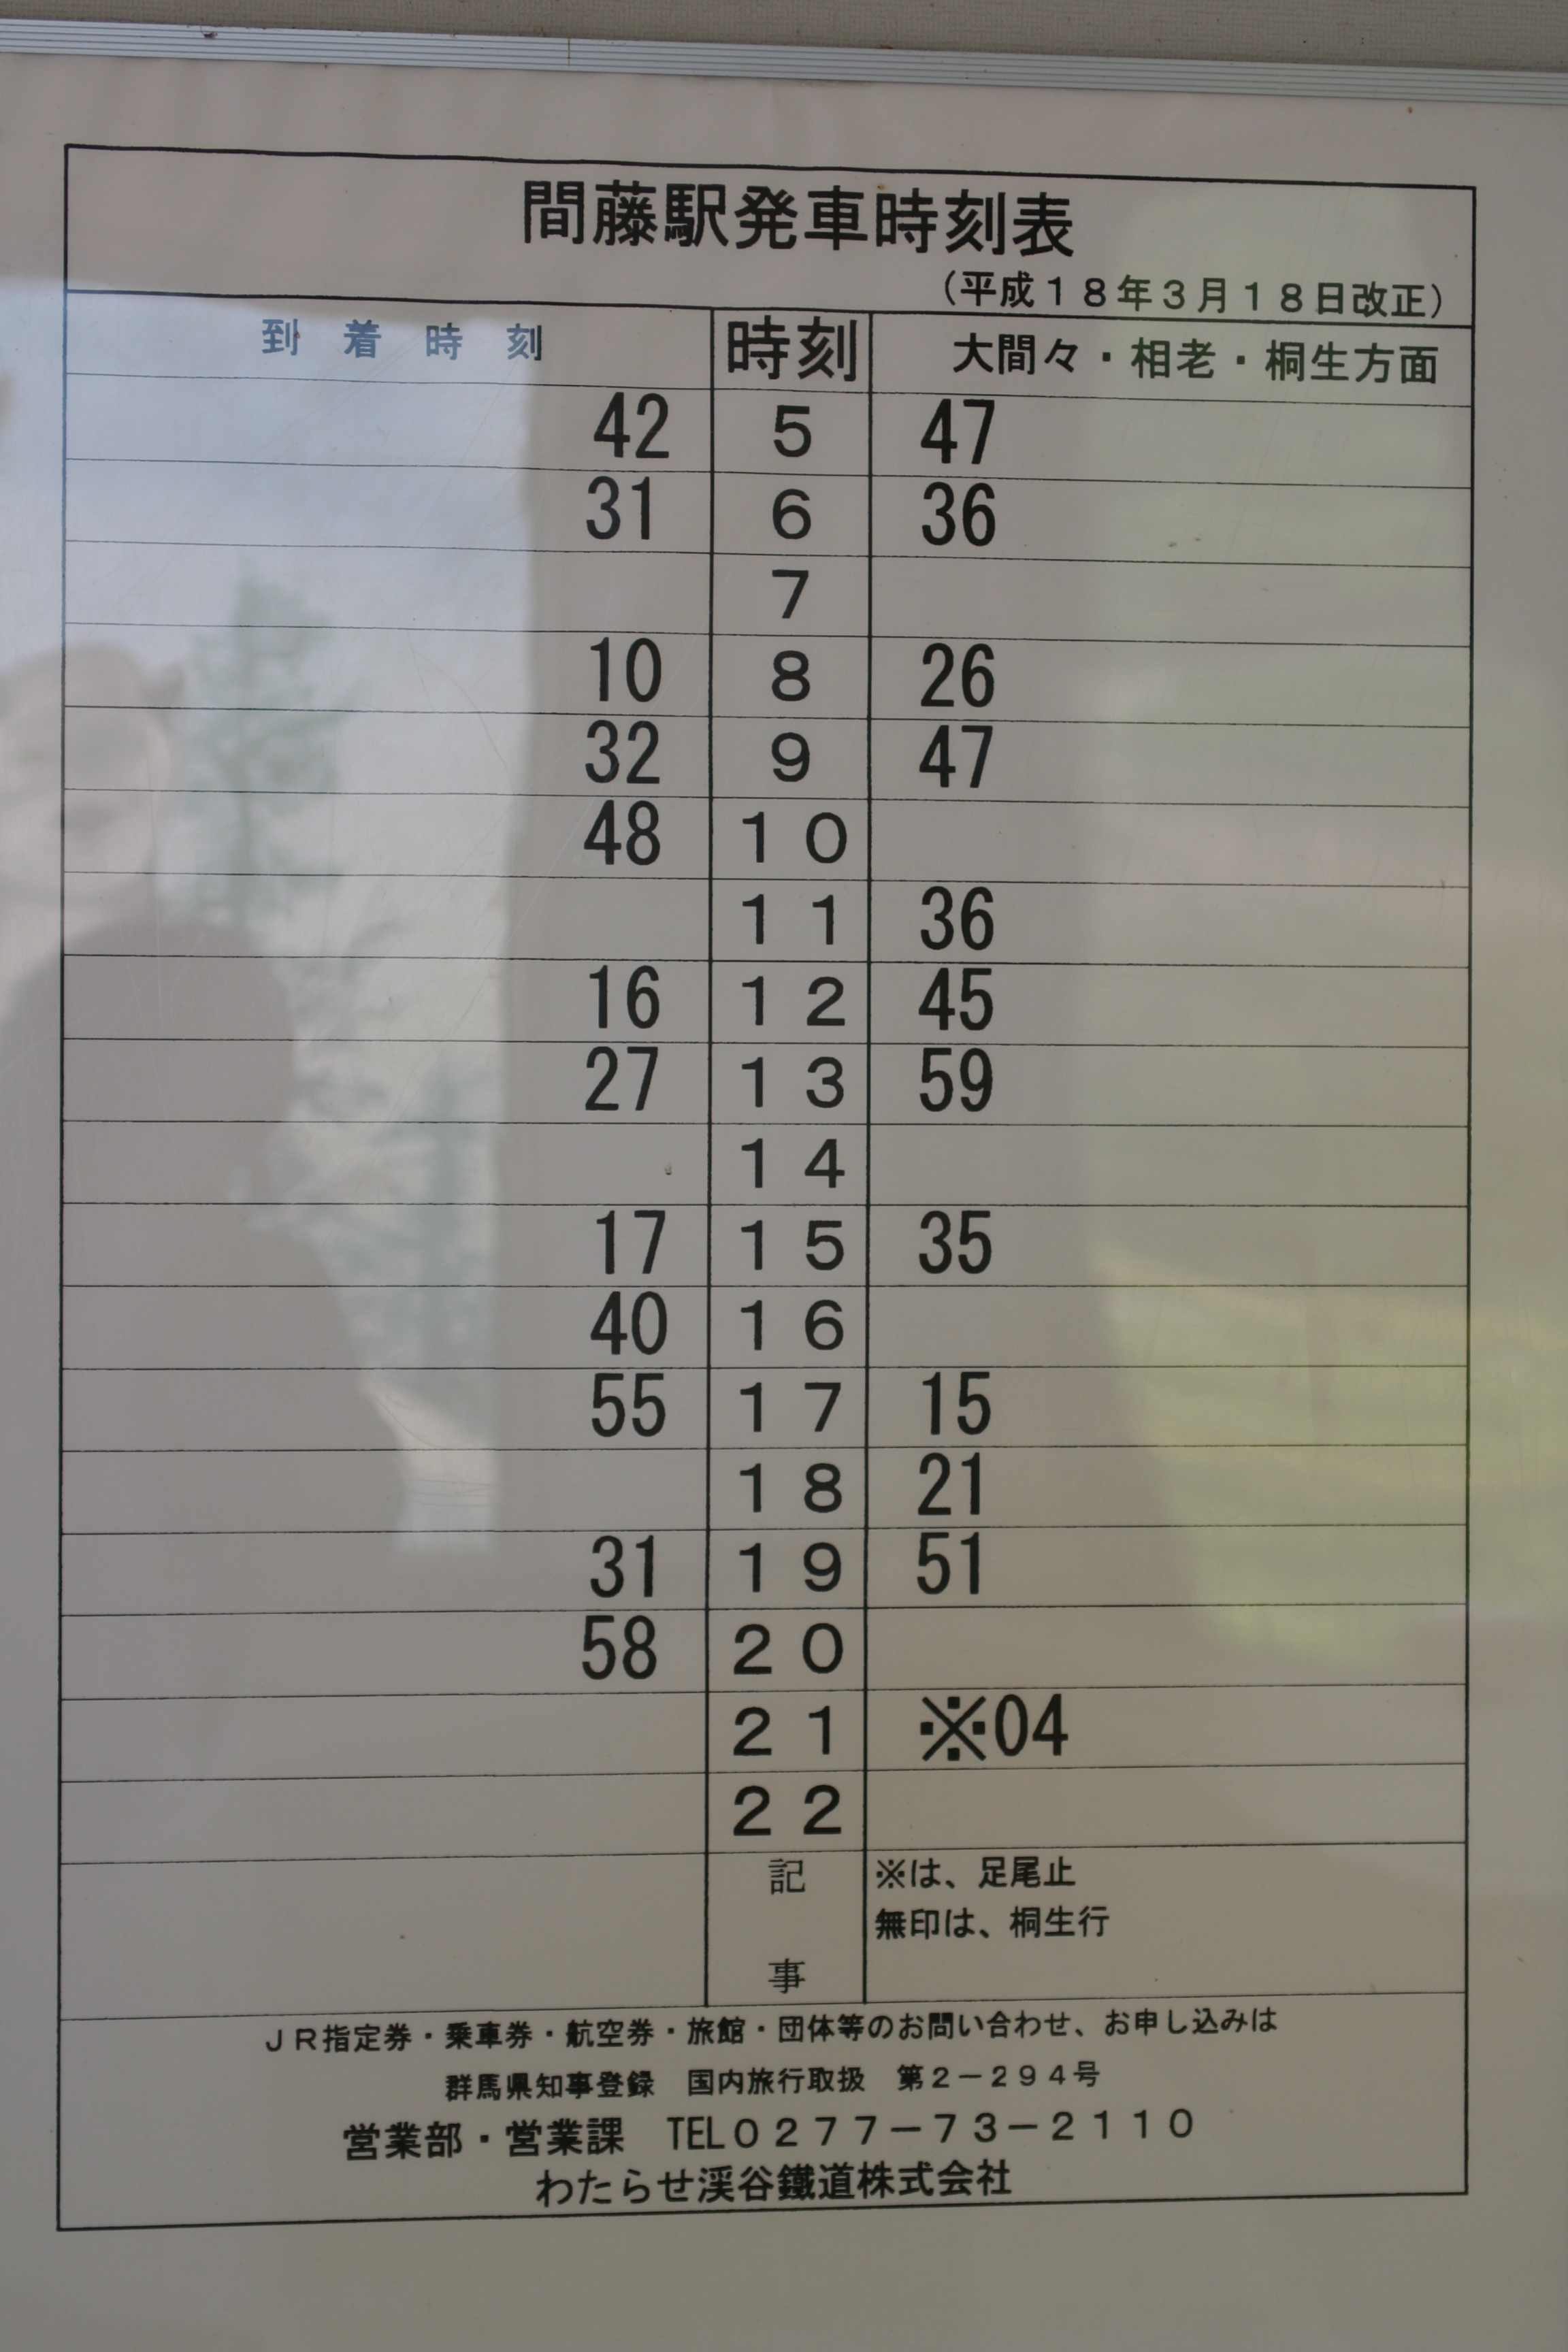 間藤駅発車時刻表
（平成１８年３月１８日改正）
到着時刻 時刻 大間々・相老・桐生方面
42 5 47
31 6 36
7
10 8 26
32 9 47
48 10
11 36
16 12 45
27 13 59
14
17 15 35
40 16
55 17 15
18 21
31 19 51
58 20
21 ※04
22
記事
※は、足尾止
無印は、桐生行
ＪＲ指定券・乗車券・航空券・旅館・団体等のお問い合わせ、お申し込みは
群馬県知事登録　国内旅行取扱　第２－２９４号
営業部・営業課　TEL０２７７－７３－２１１０
わたらせ渓谷鐵道株式会社